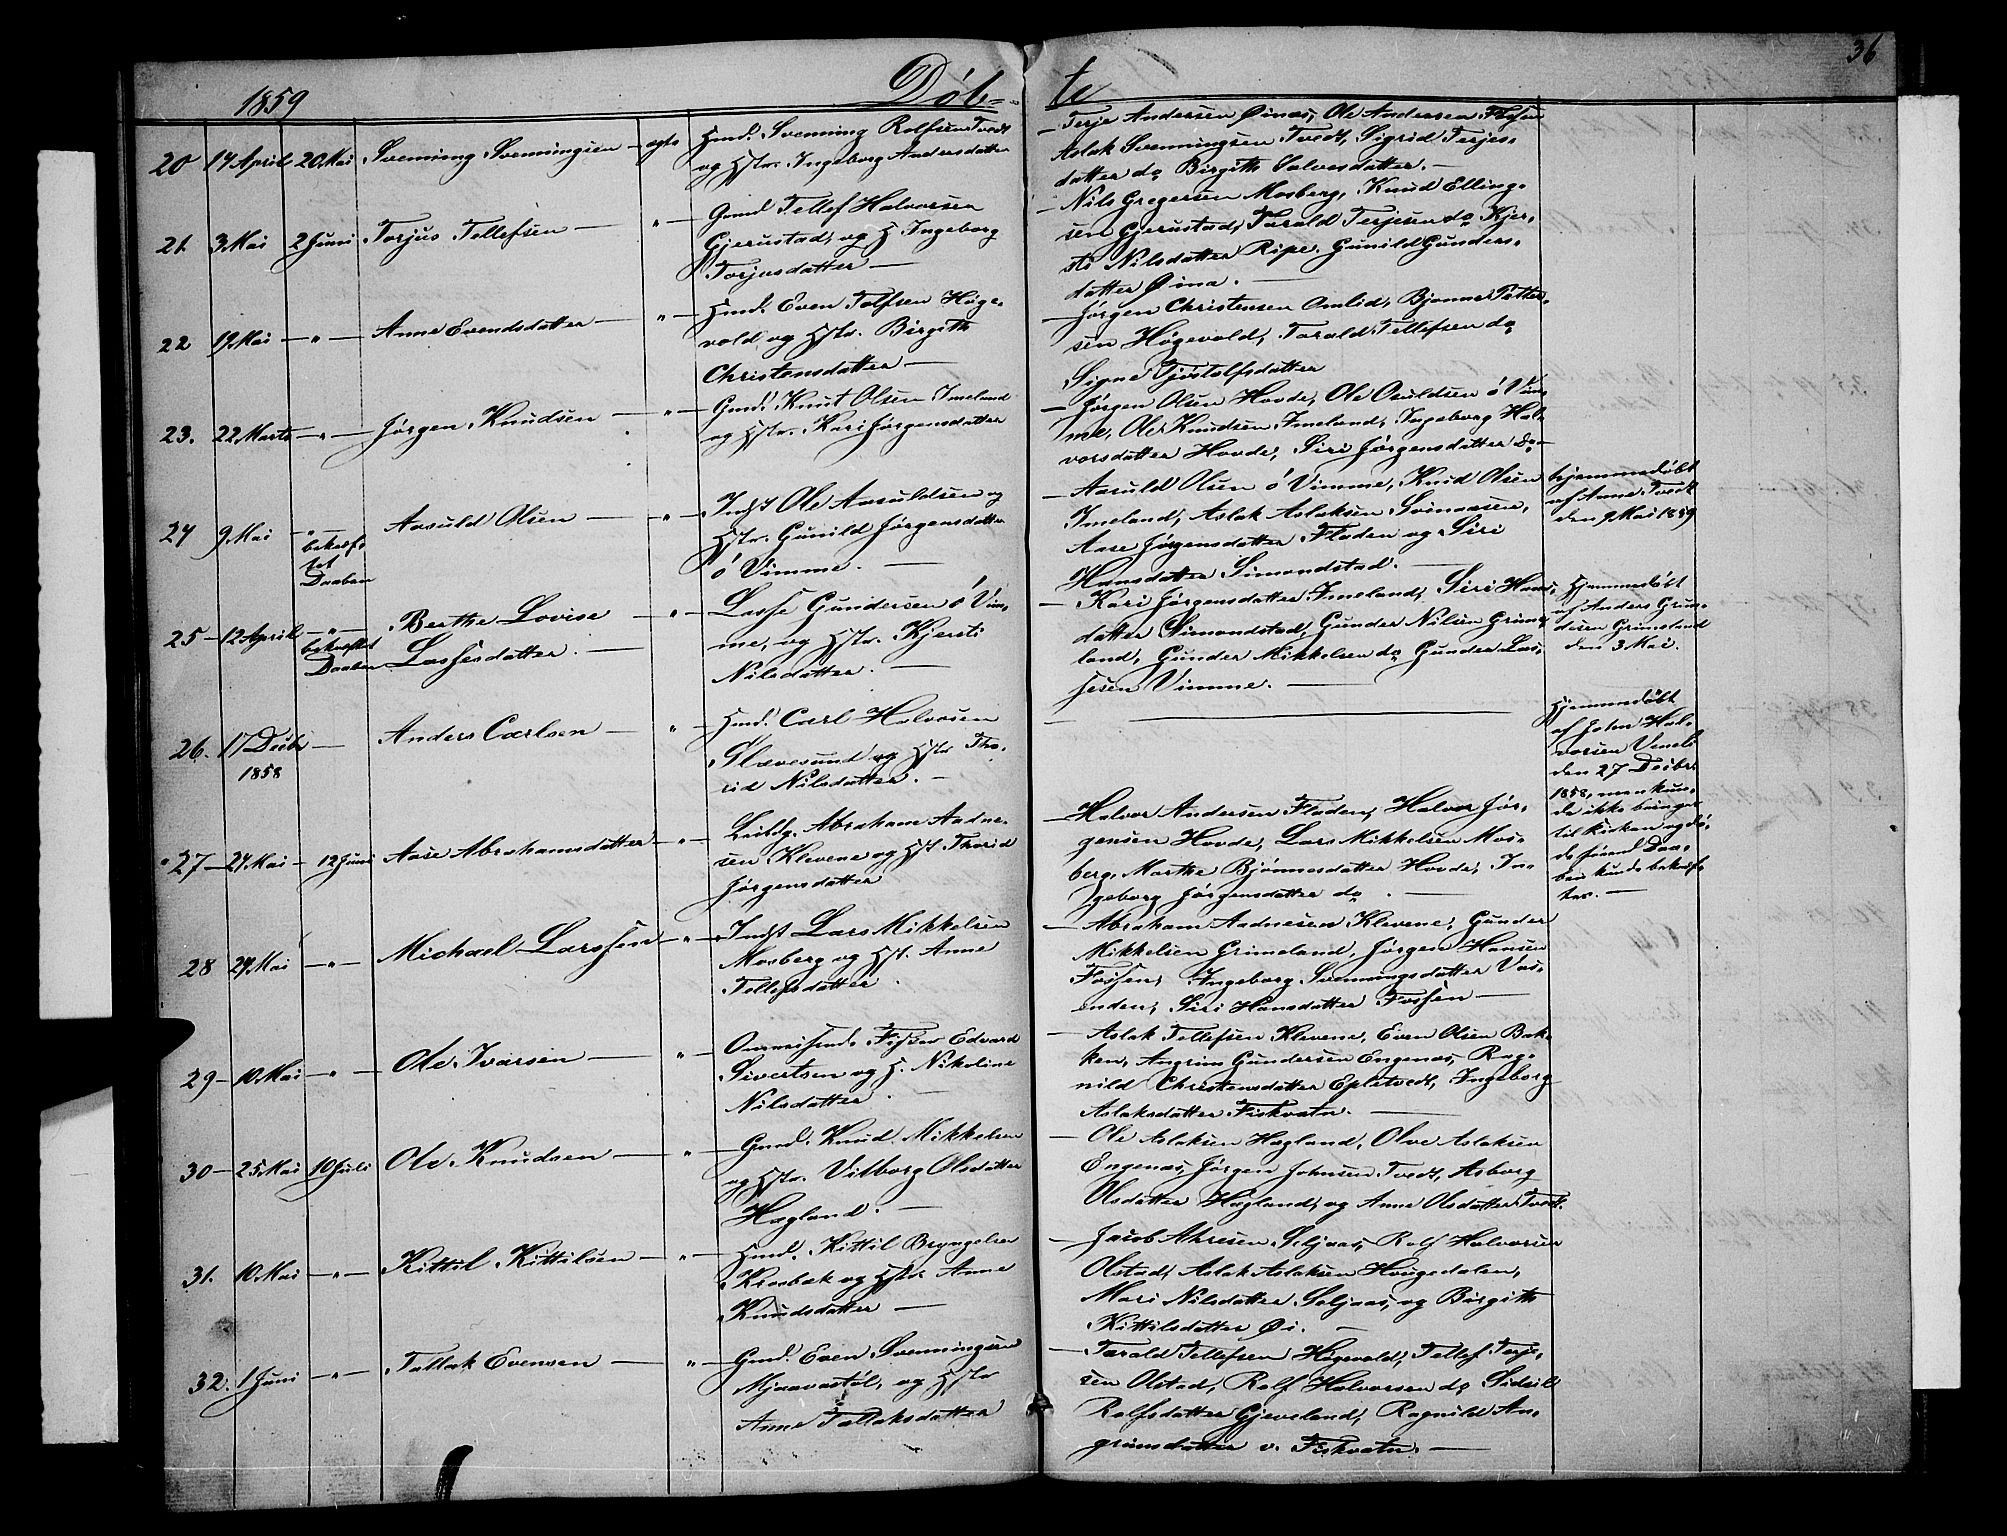 36
1859
Døb-
te
20 17 April 20 Mai Svenning Svenningsen — ægte — Gmd. Svenning Rolfsen Tvedt
og Hstr. Ingeborg Andersdatter
— Terje Andersen Øinæs, Ole Andersen Fossen
Aslak Svenningsen Tvedt, Sigrid Terjes-
datter do Birgithe Salvesdatter. —
21. 3 Mai 2 Juni Torjus Tellefsen — " — Gmd. Tellef Halvorsen
Gjerustad, og H. Ingeborg
Torjusdatter —
— Nils Gregersen Mosberg, Knud Elling-
sen Gjerustad, Tarald Terjesen do Kjer-
sti Nilsdatter Ripe. Gunild Gunders-
datter Øina. —
22 19 Mai — " — Anne Evendsdatter — " — Gmd. Even Tolfsen Høge-
vold, og Hstr. Birgithe
Christensdatter —
— Jørgen Christensen Omlid, Bjønne Petter-
sen Høgevold, Tarald Tellefsen do
Signe Tjøstolfsdatter
23. 22 Marts — " — Jørgen Knudsen — " — Gmd. Knut Olsen Imeland
og Hstr. Kari Jørgensdatter
— Jørgen Olsen Hovde, Ole Osuldsen ó Vim-
me, Ole Knudsen Imeland, Ingeborg Hal-
vorsdatter Hovde, Siri Jørgensdatter do —
24 9 Mai — " — Aasuld Olsen — " — Indst Ole Aasuldsen og
bekræf-
tet
Daaben
Hstr. Gunild Jørgensdatter
ó Vimme. —
— Aasuld Olsen ó Vimme, Knud Olsen
Imeland, Aslak Aslaksen Svinaasen,
Aase Jørgensdatter Fladen og Siri
Hansdatter Simonstad. —
hjemmedøbt
af Anne Tvedt
den 9 Mai 1859
25 — 12 April — " — Berthe Lovise — " — Lasse Gundersen ó Vim-
bekræftet
Daaben
Lassesdatter. —
me, og Hstr. Kjersti
Nilsdatter. —
— Kari Jørgensdatter Imeland, Siri Hans-
datter Simonstad, Gunder Nilsen Grime-
land, Gunder Mikkelsen do Gunder Las-
sesen Vimme. —
Hjemmedøbt
af Anders Gun-
dersen Grimeland
den 3 Mai.
26. 17 Decbr — Anders Carlsen — " — Gmd. Carl Halvorsen
1858
Slævesund og Hstr Tho-
rid Nilsdatter. —
Hjemmedøbt
af John Hal-
vorsen Vimeli
den 27 Decbr.
1858, men kun-
de ikke bringes
til kirken og dø-
de førend Daa-
ben kunde bekræf-
tes. —
27 — 24 Mai — 12 Juni Aase Abrahamsdatter — " — Leildg. Abraham Aadne-
sen Klevene og Hst Thorid
Jørgensdatter
— Halvor Andersen Fladen, Halvor Jør-
gensen Hovde, Lars Mikkelsen Mos-
berg, Marthe Bjønnesdatter Hovde, In-
geborg Jørgensdatter do. —
28 24 Mai — " — Michael Larssen — " — Indst Lars Mikkelsen
Mosberg og Hst. Anne
Tellefsdatter.
— Abraham Aadnesen Klevene, Gunder
Mikkelsen Grimeland, Jørgen Hansen
Fossen, Ingeborg Svenningsdatter Vas-
enden, Siri Hansdatter Fossen —
29 — 10 Mai — " — Ole Ivarsen — " — Omreisende Edvard
Sivertsen og H. Nikoline
Nilsdatter. —
— Aslak Tellefsen Klevene, Even Olsen Bak-
ken, Angrim Gundersen Engenæs, Rag-
nild Christensdatter Epletvedt, Ingeborg
Aslaksdatter Fiskvatn. —
30 — 25 Mai 10 Juli Ole Knudsen — " — Gmd. Knud Mikkelsen
og Hstr. Vilborg Olsdatter
Hægland. —
— Ole Aslaksen Hægland, Olve Aslaksen
Engenæs, Jørgen Johnsen Tvedt, Asborg
Olsdatter Hægland, og Anne Olsdatter Tvedt.
31. 10 Mai — " — Kittil Kittilsen — " — Gmd. Kittil Bryngelsen
Krosbæk og Hstr Anne
Knudsdatter —
— Jacob Ahresen Seljaas, Rolf Halvorsen
Olstad, Aslak Aslaksen Hougedalen,
Mari Nilsdatter Seljaas, og Birgithe
Kittilsdatter Øi. —
32. 1 Juni — " — Tallak Evensen — " — Gmd. Even Svenningsen
Mjaavastøl, og Hstr
Anne Tallaksdatter
— Tarald Tellefsen Høgevold, Tellef Terje-
sen Olstad, Rolf Halvorsen do Sidsel
Rolfsdatter Gjeveland, Ragnild An-
grimsdatter v. Fiskvatn. —